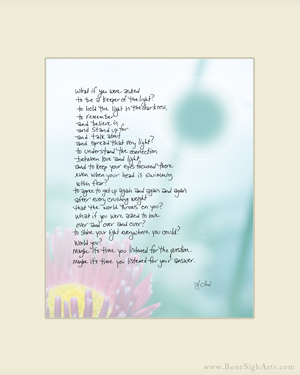 what if you were asked
to be a keeper of the light?
to hold the light in the darkness,
to remember
and believe in
and stand up for
and talk about
and spread that very light?
to understand the connection
between love and light,
and to keep your eyes focused there
even when your head is swimming
with fear?
to agree to get up again and again and again
after every crushing weight
that the world throws on you?
what if you were asked to love
over and over and over?
to shine your light everywhere you could?
would you?
maybe it's time you listened for the question.
maybe it's time you listened for your answer.
www.BoneSighArts.com